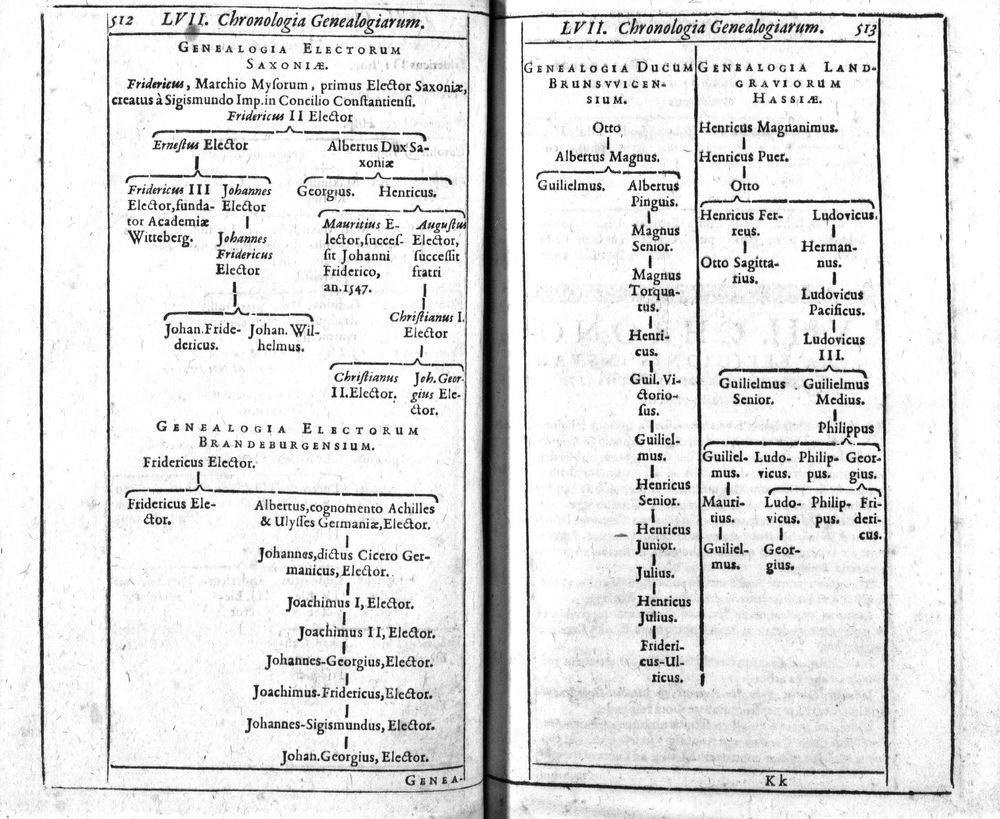 512 LVII. Chronologia Genealogiarum.
GENEALOGIA ELECTORUM
SAXONIÆ.
Fridericus, Marchio Mysorum, primus Elector Saxoniæ,
creatus à Sigismundo Imp. in Concilio Constantiensi.
Fridericus II Elector
Ernestus Elector
Albertus Dux Sa-
xoniæ
Fridericus III
Elector, funda-
tor Academiæ
Witteberg.
Johannes
Elector
Johannes
Fridericus
Elector
Johan. Fride-
dericus.
Johan. Wil-
helmus.
Georgius. Henricus.
Mauritius E-
lector, succes-
sit Johanni
Friderico,
an. 1547.
Augustus
Elector,
successit
fratri
Christianus I.
Elector
Christianus
II. Elector.
Joh. Geor-
gius Ele-
ctor.
GENEALOGIA ELECTORUM
BRANDEBURGENSIUM.
Fridericus Elector.
Fridericus Ele-
ctor.
Albertus, cognomento Achilles
& Ulysses Germaniæ, Elector.
Johannes, dictus Cicero Ger-
manicus, Elector.
Joachimus I, Elector.
Joachimus II, Elector.
Johannes-Georgius, Elector.
Joachimus-Fridericus, Elector.
Johannes-Sigismundus, Elector.
Johan. Georgius, Elector.
GENEA-
LVII. Chronologia Genealogiarum. 513
GENEALOGIA DUCUM
BRUNSVVICEN-
SIUM.
Otto
Albertus Magnus.
Guilielmus.
Albertus
Pinguis.
Magnus
Senior.
Magnus
Torqua-
tus.
Henri-
cus.
Guil. Vi-
ctorio-
sus.
Guiliel-
mus.
Henricus
Senior.
Henricus
Junior.
Julius.
Henricus
Julius.
Frideri-
cus-Ul-
ricus.
GENEALOGIA LAND-
GRAVIORUM
HASSIÆ.
Henricus Magnanimus.
Henricus Puer.
Otto
Henricus Fer-
reus.
Otto Sagitta-
rius.
Ludovicus.
Herman-
nus.
Ludovicus
Pacificus.
Ludovicus
III.
Guilielmus
Senior.
Guilielmus
Medius.
Philippus
Guiliel-
mus.
Ludo-
vicus.
Philip-
pus.
Geor-
gius.
Mauri-
tius.
Guiliel-
mus.
Ludo-
vicus.
Geor-
gius.
Philip-
pus.
Fri-
deri-
cus.
Kk